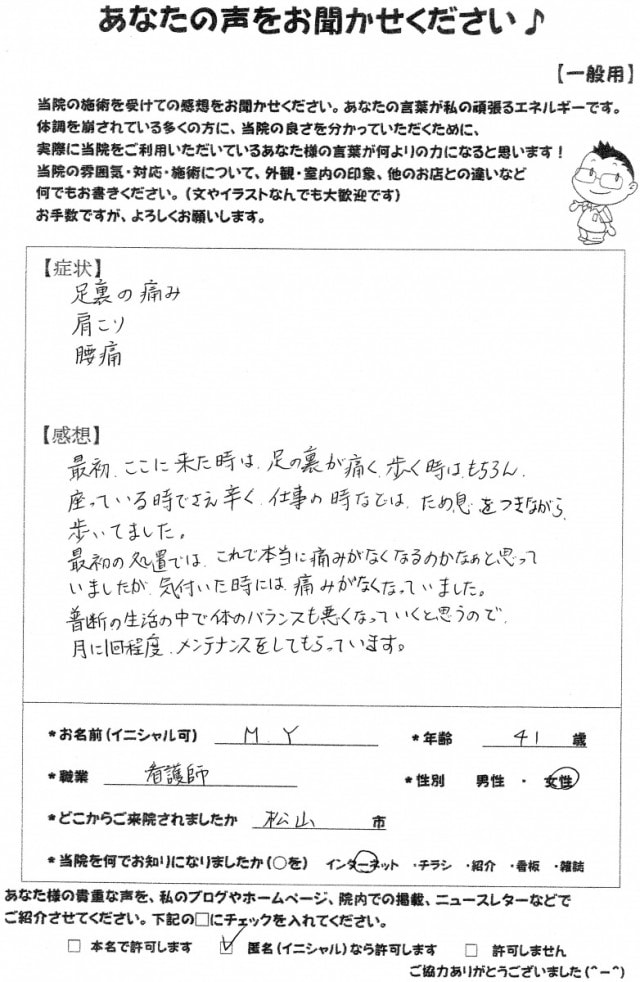 あなたの声をお聞かせください♪
【一般用】
当院の施術を受けての感想をお聞かせください。あなたの言葉が私の頑張るエネルギーです。
体調を崩されている多くの方に、当院の良さを分かっていただくために、
実際に当院をご利用いただいているあなた様の言葉が何よりの力になると思います！
当院の雰囲気・対応・施術について、外観・室内の印象、他のお店との違いなど
何でもお書きください。（文やイラストなんでも大歓迎です）
お手数ですが、よろしくお願いします。
【症状】
足裏の痛み
肩こり
腰痛
【感想】
最初、ここに来た時は、足の裏が痛く、歩く時はもちろん、
座っている時でさえ辛く、仕事の時などは、ため息をつきながら、
歩いてました。
最初の処置では、これで本当に痛みがなくなるのかなぁと思って
いましたが、気付いた時には、痛みがなくなっていました。
普断の生活の中で体のバランスも悪くなっていくと思うので、
月に1回程度、メンテナンスをしてもらっています。
*お名前（イニシャル可） M.Y *年齢 41 歳
*職業 看護師 *性別 男性 ・ 女性
*どこからご来院されましたか 松山 市
*当院を何でお知りになりましたか（○を） インターネット ・チラシ ・紹介 ・看板 ・雑誌
あなた様の貴重な声を、私のブログやホームページ、院内での掲載、ニュースレターなどで
ご紹介させてください。下記の□にチェックを入れてください。
□ 本名で許可します ☑ 匿名（イニシャル）なら許可します □ 許可しません
ご協力ありがとうございました（^－^）